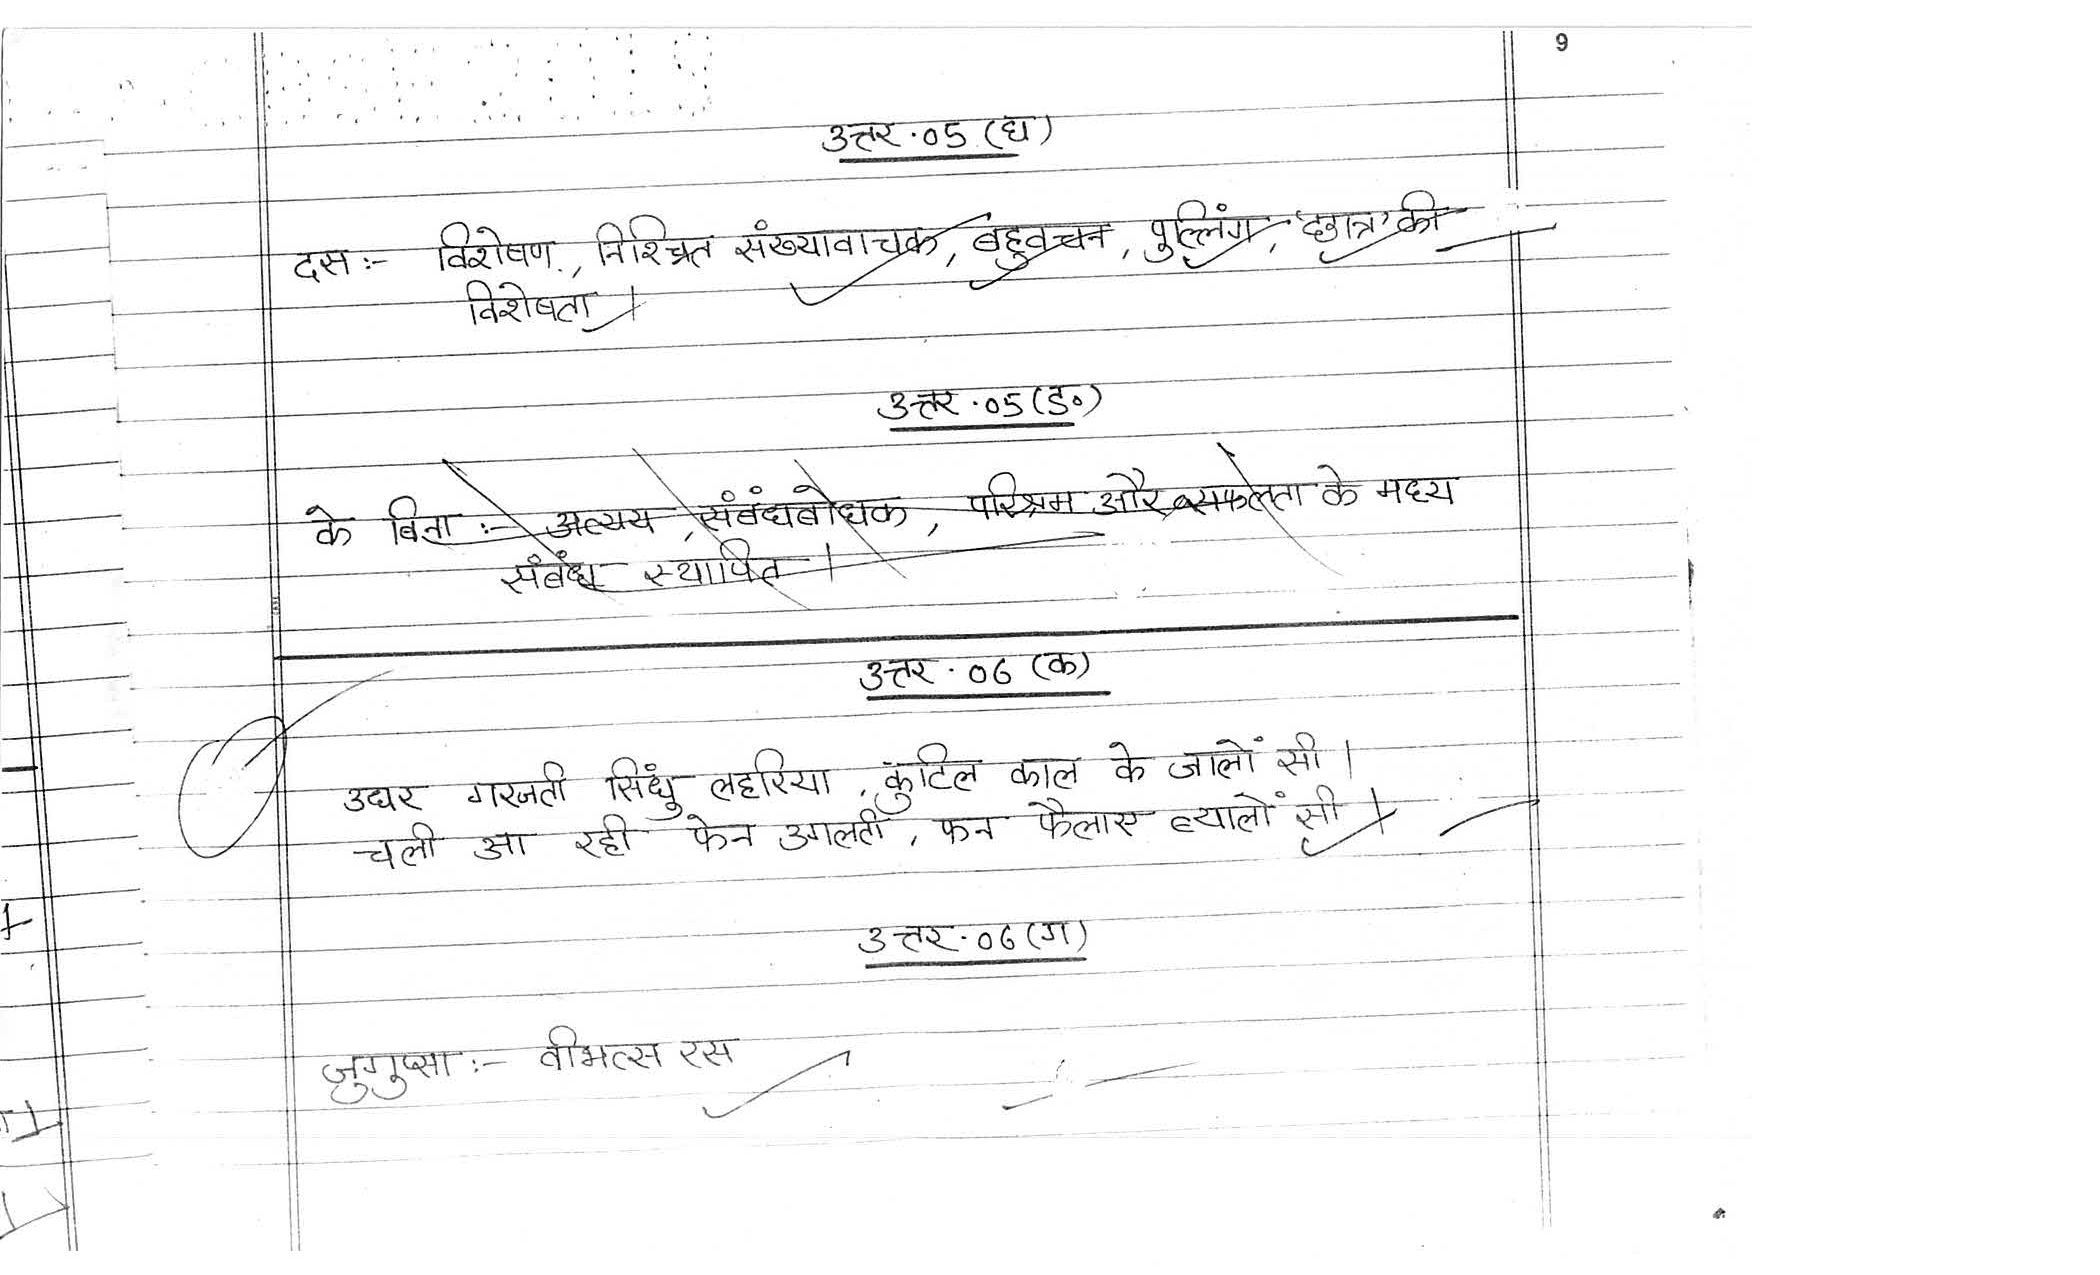 9
उत्तर.05 (घ)
दस :- विशेषण, निश्चित संख्यावाचक, बहुवचन, पुल्लिंग, 'छात्र' की
विशेषता।
उत्तर.05 (ड॰)
के बिना :- अव्यय, संबंधबोधक, परिश्रम और सफलता के मध्य
संबंध स्थापित।
उत्तर.06 (क)
उधर गरजती सिंधु लहरिया, कुटिल काल के जालों सी।
चली आ रही फेन उगलती, फन फैलाए व्यालों सी।
उत्तर.06 (ग)
जुगुप्सा :- वीभत्स रस